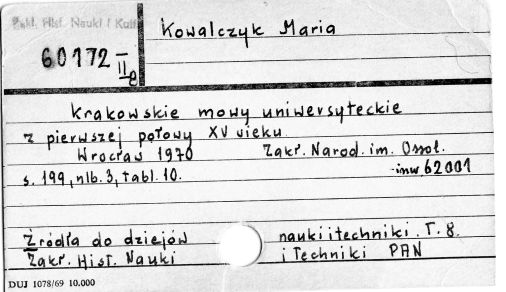 Zakł. Hist. Nauki i
Kowalczyk Maria
60172 II
Krakowskie mowy uniwersyteckie
z pierwszej połowy XV wieku
Wrocław 1970 Zakł. Narod. im. Ossol.
s. 199, nlb. 3, tabl. 10. inw. 62001
Źródła do dziejów nauki i techniki. T. 8.
Zakł. Hist. Nauki i Techniki PAN
DUJ 1078/69 10.000